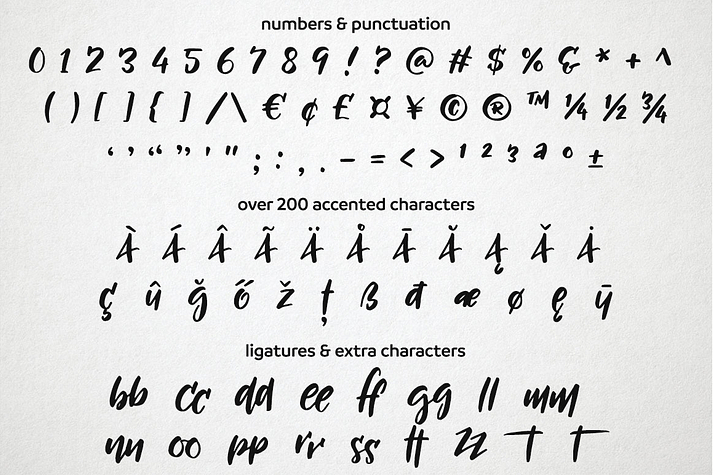 numbers & punctuation
0 1 2 3 4 5 6 7 8 9 ! ? @ # $ % & * + ^
( ) [ ] { } / \ € ¢ £ ¤ ¥ © ® ™ ¼ ½ ¾
‘ ’ “ ” ' " ; : , . – = < > ¹ ² ³ ª º ±
over 200 accented characters
À Á Â Ã Ä Å Ā Ă Ą Ǎ Ȧ
ç û ğ ő ž ț ß đ æ ø ę ȳ
ligatures & extra characters
bb cc dd ee ff gg ll mm
nn oo pp rr ss tt zz T T